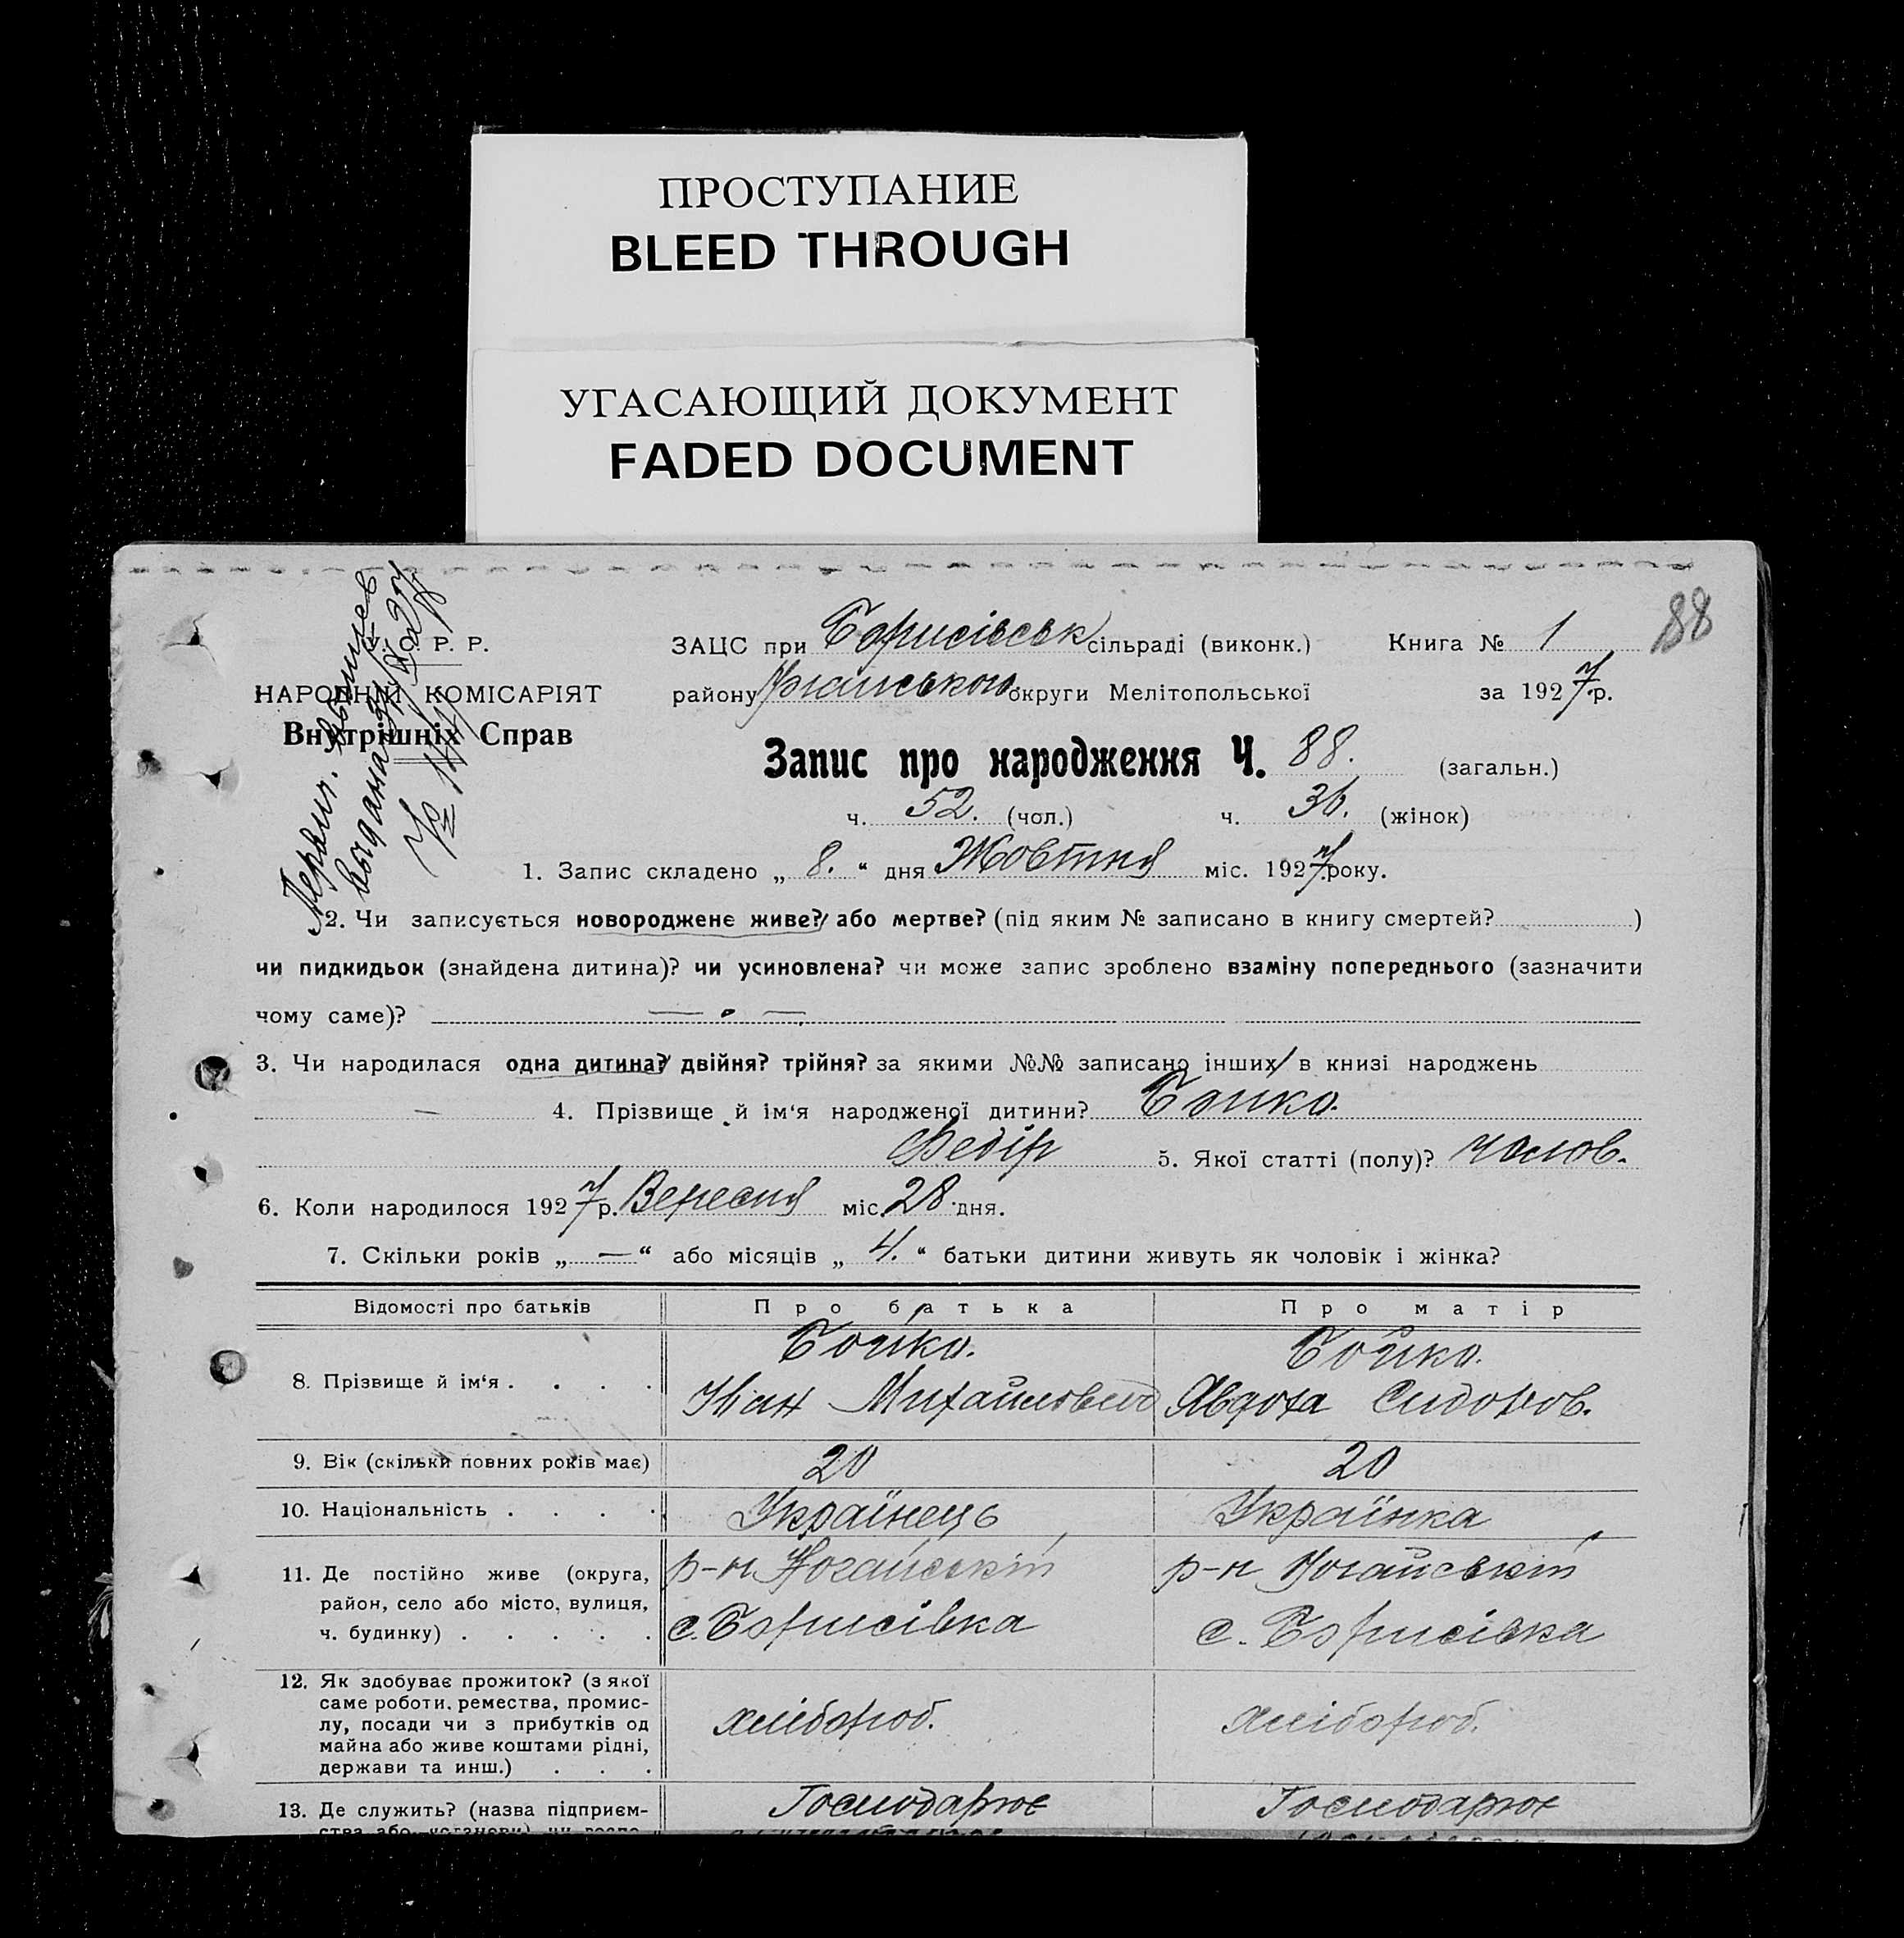 ПРОСТУПАНИЕ
BLEED THROUGH
УГАСАЮЩИЙ ДОКУМЕНТ
FADED DOCUMENT
88
Р. Р.
НАРОДНІЙ КОМІСАРІЯТ
Внутрішніх Справ
ЗАЦС при Борисівськ сільраді (виконк.) Книга № 1
району Ногайського округи Мелітопольської за 1927 р.
Запис про народження Ч. 88. (загальн.)
ч. 52. (чол.) ч. 36. (жінок)
1. Запис складено „ 8. “ дня Жовтня міс. 1927 року.
2. Чи записується новороджене живе? або мертве? (під яким № записано в книгу смертей? )
чи пидкидьок (знайдена дитина)? чи усиновлена? чи може запис зроблено взаміну попереднього (зазначити
чому саме)?
3. Чи народилася одна дитина? двійня? трійня? за якими №№ записано інших в книзі народжень
— 4. Прізвище й ім‘я народженої дитини? Бойко.
Федір 5. Якої статті (полу)? чолов.
6. Коли народилося 1927 р. Вересня міс. 28 дня.
7. Скільки років „ — “ або місяців „ 4. “ батьки дитини живуть як чоловік і жінка?
Відомості про батьків Про батька Про матір
8. Прізвище й ім‘я . . . . Бойко. Бойко.
Іван Михайлович Явдоха Сидоров.
9. Вік (скільки повних років має) 20 20
10. Національність . . . . Українець Українка
11. Де постійно живе (округа, р-н Ногайській р-н Ногайській
район, село або місто, вулиця, с. Борисівка с. Борисівка
ч. будинку) . . . . .
12. Як здобуває прожиток? (з якої
саме роботи, ремества, промис-
лу, посади чи з прибутків од хлібороб. хлібороб.
майна або живе коштами рідні,
держави та инш.) . . .
13. Де служить? (назва підприєм- Господарює Господарює